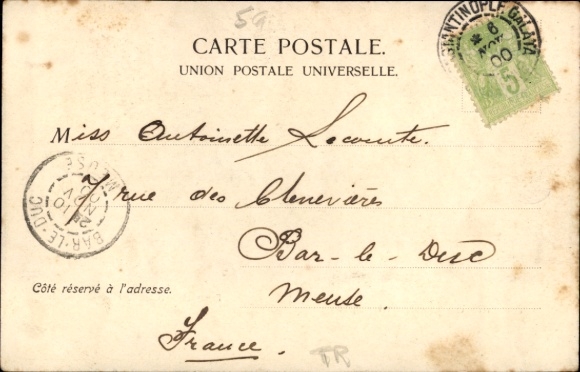 59
CARTE POSTALE.
UNION POSTALE UNIVERSELLE.
CONSTANTINOPLE-GALATA
6
NOV
00
5
Miss Antoinette Lecomte.
7 rue des Chenevières
Bar-le-Duc
Meuse.
France.
BAR-LE-DUC
MEUSE
10
NOV
00
Côté réservé à l'adresse.
TR